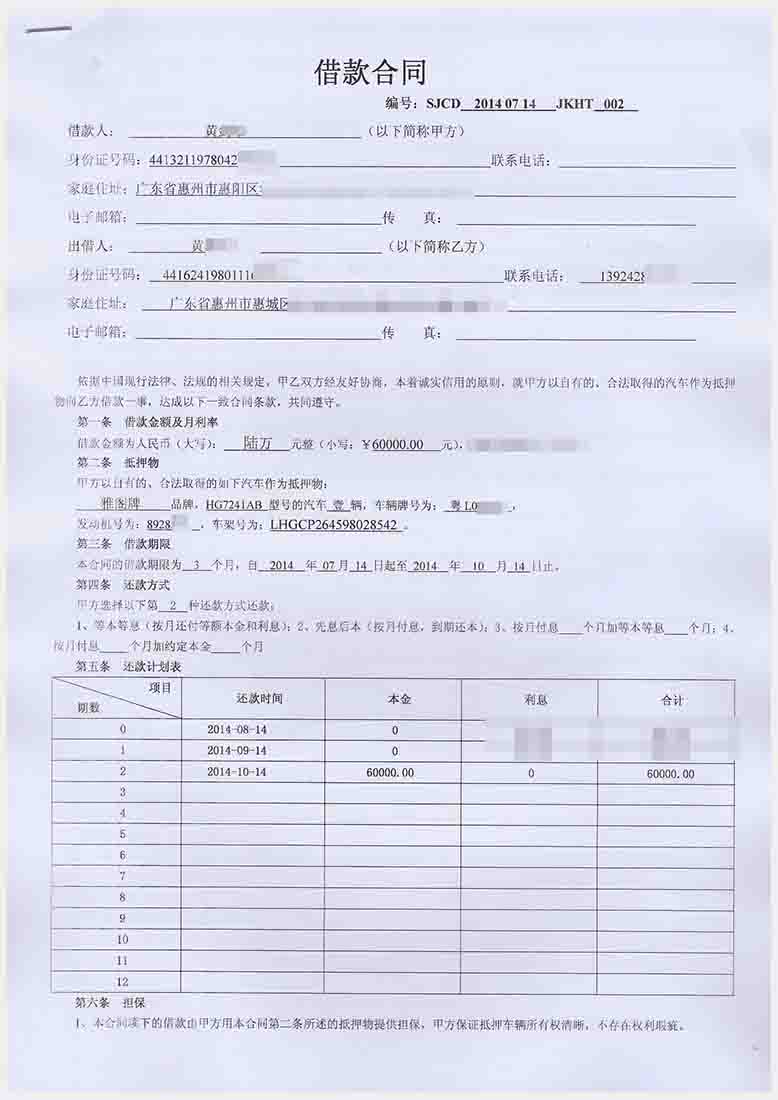 借款合同
编号：SJCD 2014 07 14 JKHT 002
借款人：黄（以下简称甲方）
身份证号码：4413211978042 联系电话：
家庭住址：广东省惠州市惠阳区
电子邮箱： 传 真：
出借人：黄（以下简称乙方）
身份证号码：4416241980111 联系电话：1392428
家庭住址：广东省惠州市惠城区
电子邮箱： 传 真：
依据中国现行法律、法规的相关规定，甲乙双方经友好协商，本着诚实信用的原则，就甲方以自有的、合法取得的汽车作为抵押
物向乙方借款一事，达成以下一致合同条款，共同遵守。
第一条 借款金额及月利率
借款金额为人民币（大写）：陆万 元整（小写：￥60000.00 元），
第二条 抵押物
甲方以自有的、合法取得的如下汽车作为抵押物：
雅阁牌 品牌，HG7241AB 型号的汽车 壹 辆，车辆牌号为：粤 L0 ，
发动机号为：8928 ，车架号为：LHGCP264598028542 。
第三条 借款期限
本合同的借款期限为 3 个月，自 2014 年 07 月 14 日起至 2014 年 10 月 14 日止。
第四条 还款方式
甲方选择以下第 2 种还款方式还款：
1、等本等息（按月还付等额本金和利息）；2、先息后本（按月付息，到期还本）；3、按月付息 个月加等本等息 个月；4、
按月付息 个月加约定本金 个月
第五条 还款计划表
项目 期数 还款时间 本金 利息 合计
0 2014-08-14 0
1 2014-09-14 0
2 2014-10-14 60000.00 0 60000.00
3
4
5
6
7
8
9
10
11
12
第六条 担保
1、本合同项下的借款由甲方用本合同第二条所述的抵押物提供担保，甲方保证抵押车辆所有权清晰，不存在权利瑕疵。